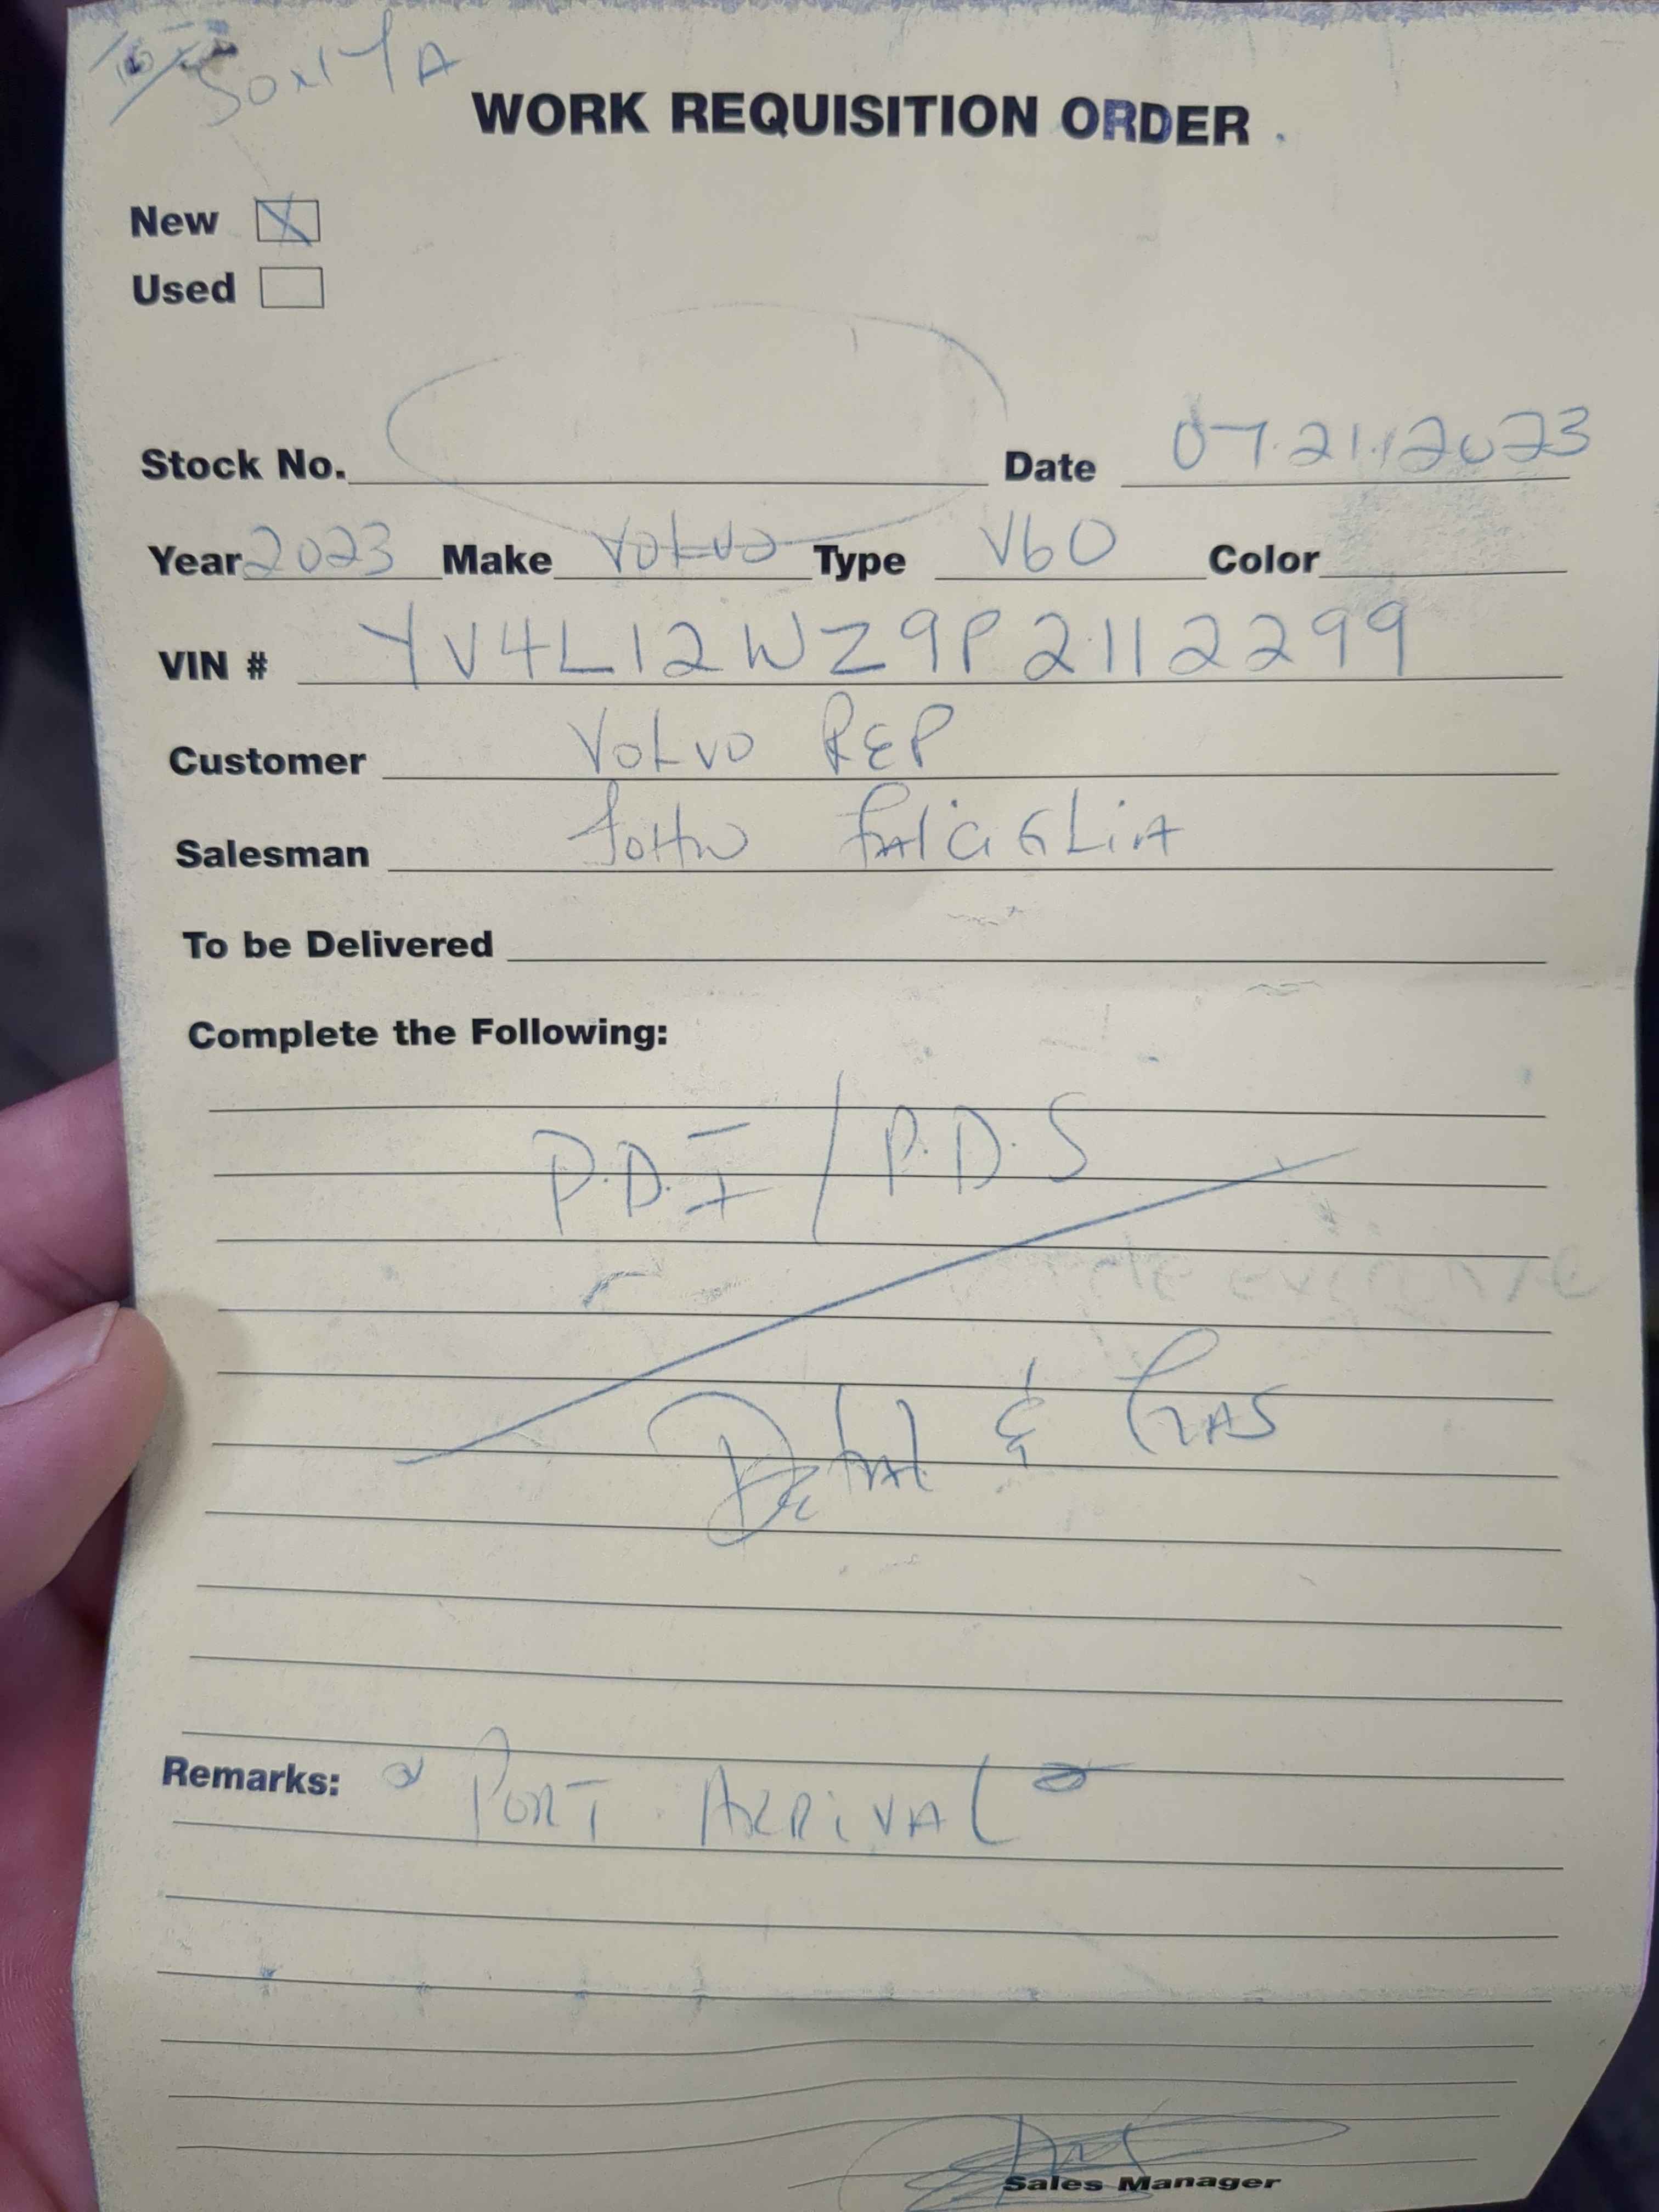 WORK REQUISITION ORDER
New X
Used
Stock No. Date 07.21.2023
Year 2023 Make Volvo Type V60 Color
VIN # YV4L12WZ9P2112299
Customer Volvo REP
Salesman JOHN FAlCiGLiA
To be Delivered
Complete the Following:
P.D.I / P.D.S
Detail & GAS
Remarks: PORT ARRIVAL
Sales Manager